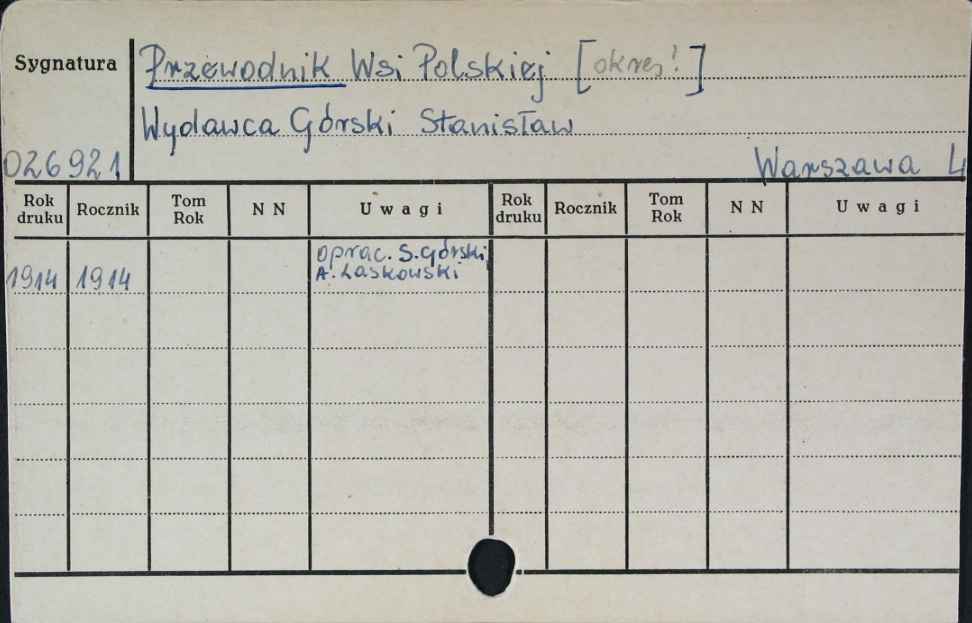 Sygnatura
Przewodnik Wsi Polskiej [okres!]
Wydawca Górski Stanisław
026921
Warszawa 4
Rok druku Rocznik Tom Rok N N Uwagi Rok druku Rocznik Tom Rok N N Uwagi
1914 1914 Oprac. S. Górski
A. Laskowski